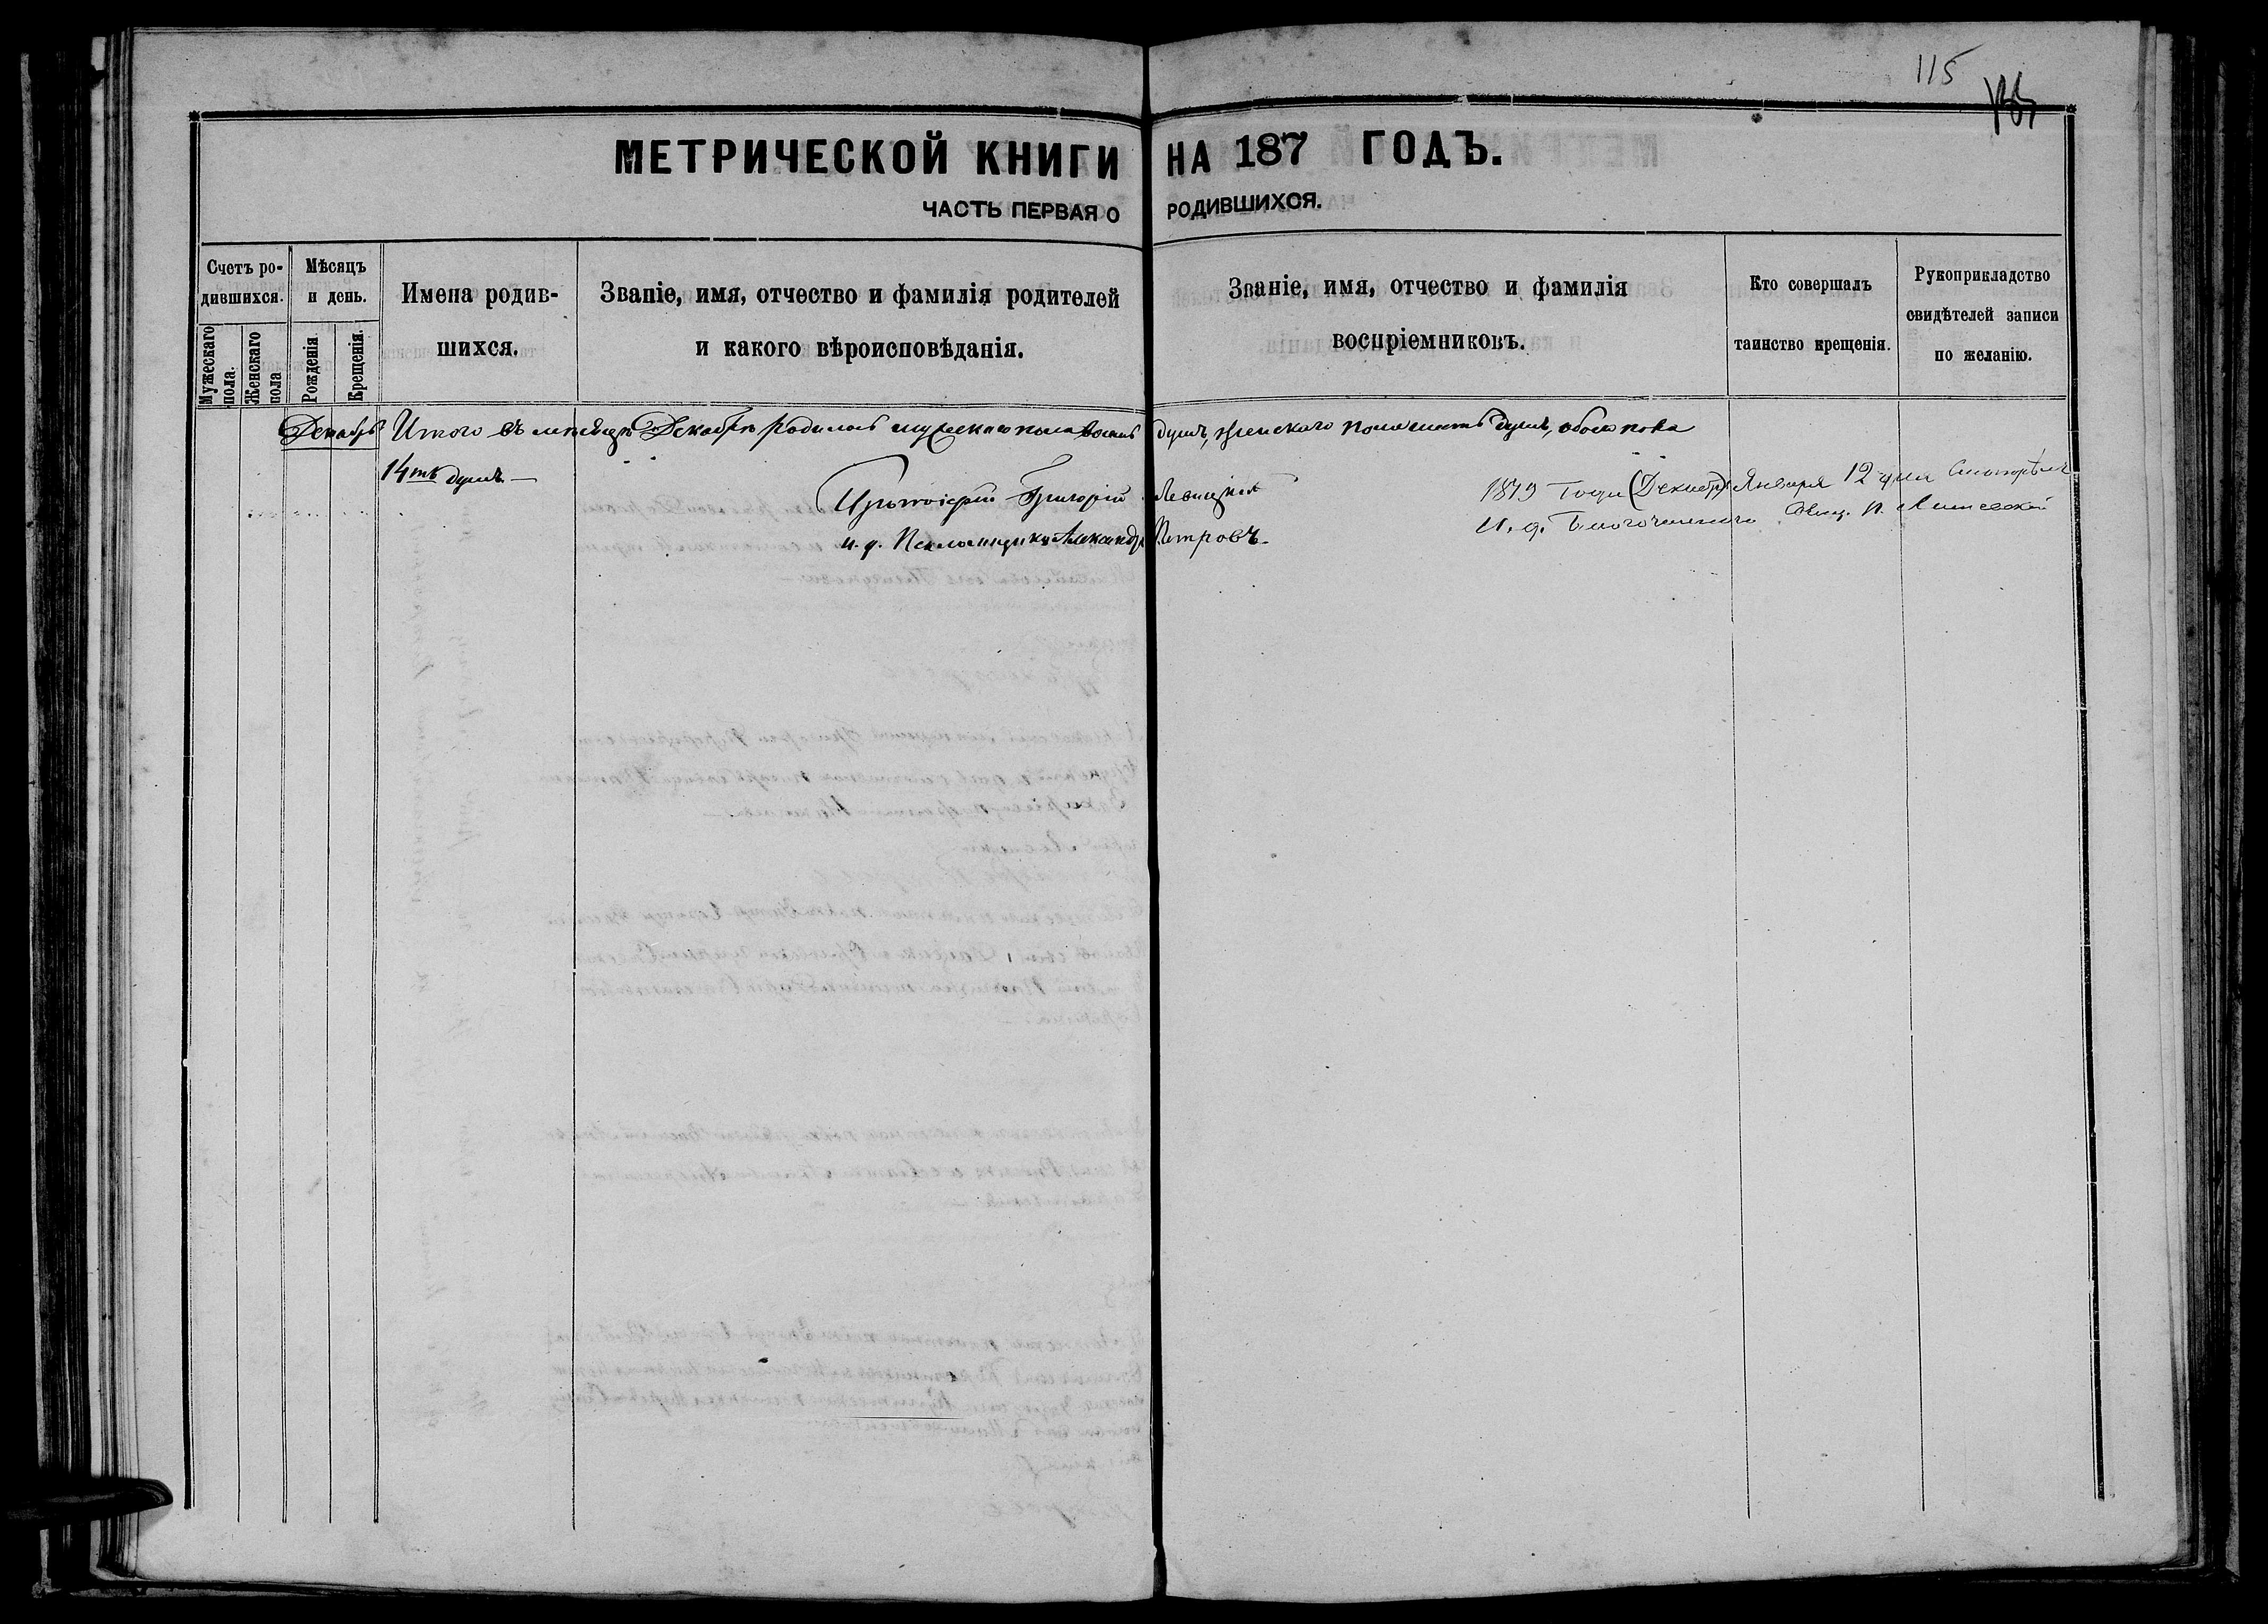 115
МЕТРИЧЕСКОЙ КНИГИ НА 187 ГОДЪ.
ЧАСТЬ ПЕРВАЯ О РОДИВШИХСЯ.
Счетъ родившихся.
Мужескаго пола.
Женскаго пола
Мѣсяцъ и день.
Рожденія
Крещенія.
Имена родив-
шихся.
Званіе, имя, отчество и фамилія родителей
и какого вѣроисповѣданія.
Званіе, имя, отчество и фамилія
воспріемниковъ.
Кто совершалъ
таинство крещенія.
Рукоприкладство
свидѣтелей записи
по желанію.
Декабрь Итого въ мѣсяцѣ Декабрѣ родилось мужескаго пола восемь душъ, женскаго пола шесть душъ, обоего пола
14ть душъ.—
Протоіерей Григорій Левицкій
и. д. Псаломщика Александръ Петровъ.
1879 года (Декабр) Января 12 дня Смотрѣлъ
И. д. Благочиннаго Свящ. П.